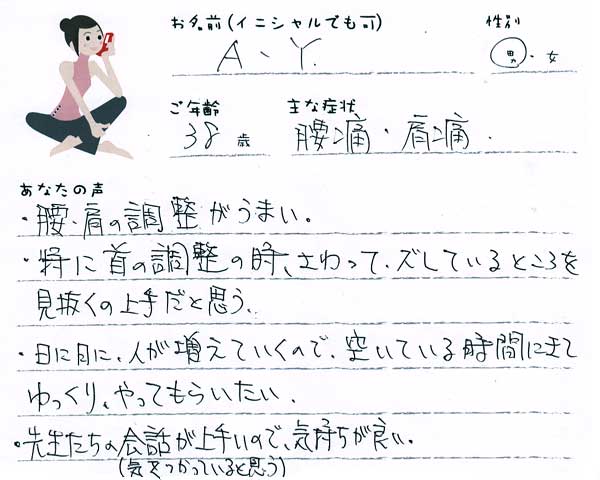 お名前(イニシャルでも可)
性別
A、Y.
男・女
ご年齢
主な症状
38歳
腰痛・肩痛.
あなたの声
・腰・肩の調整がうまい。
・特に首の調整の時、さわって、ズしているところを
見抜くの上手だと思う、
・日に日に、人が増えていくので、空いている時間にきて
ゆっくり、やってもらいたい、
・先生たちの会話が上手いので、気持ちが良い.
(気をつかっていると思う)